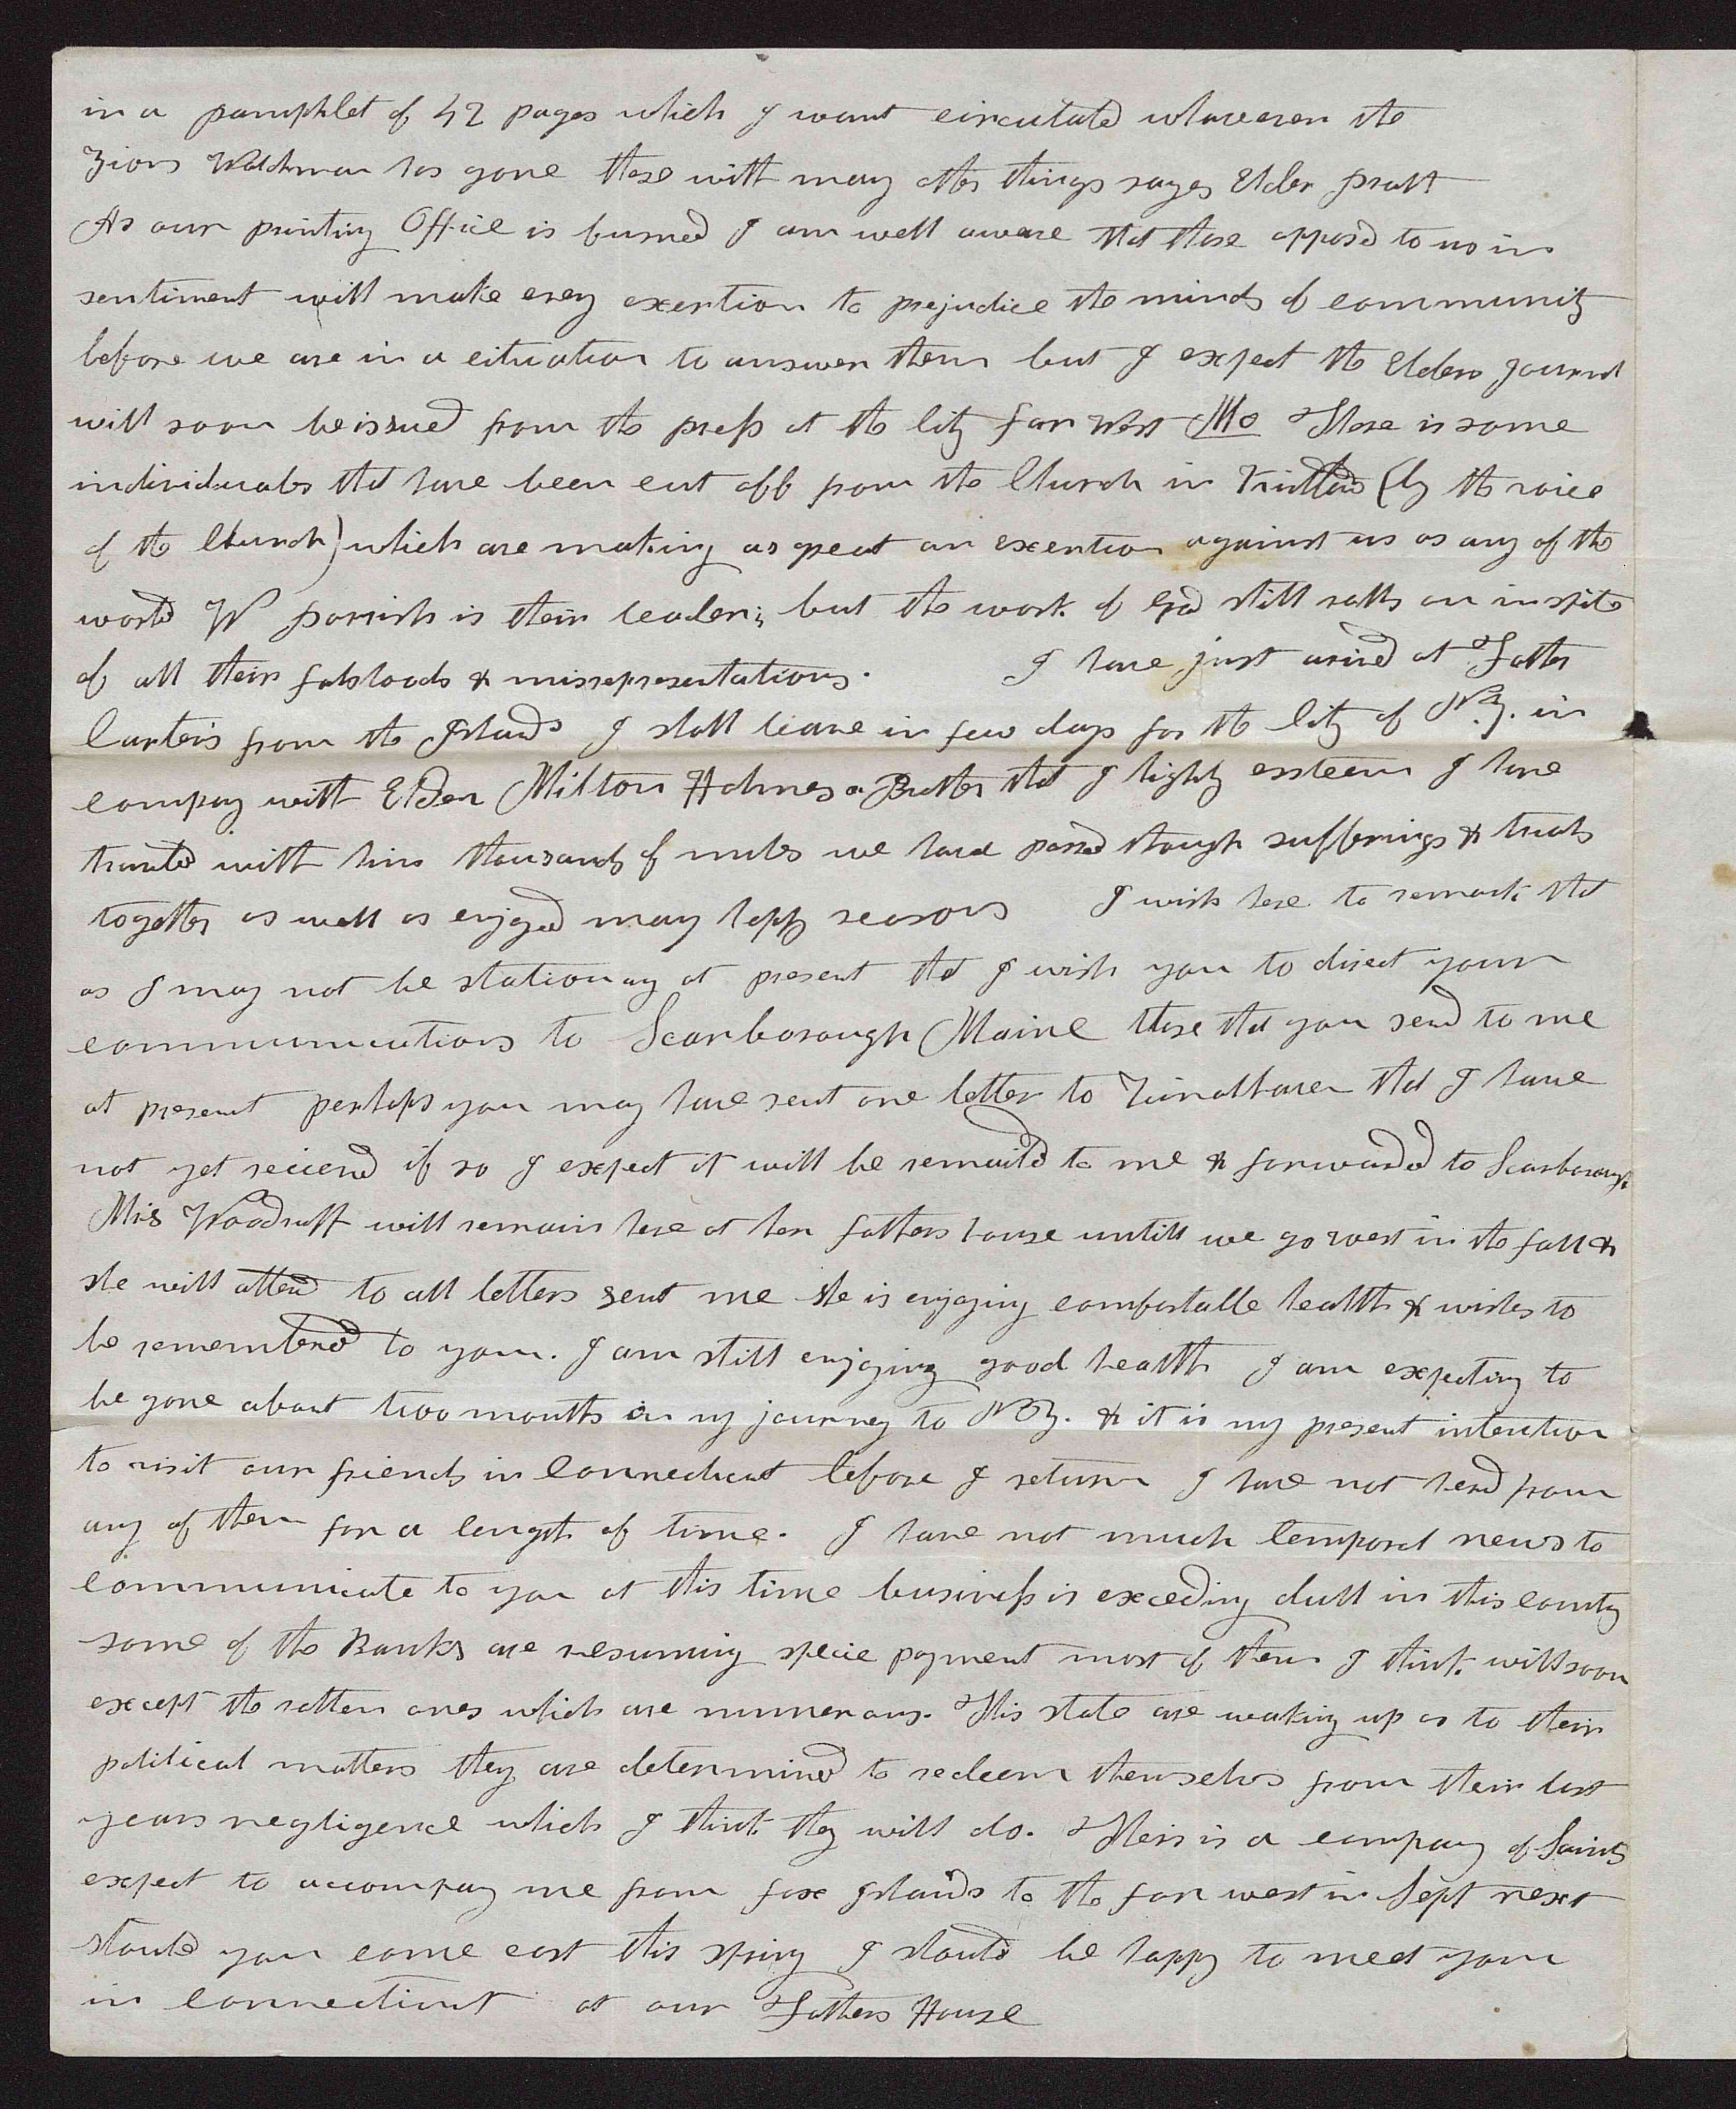 in a pamphlet of 42 pages which I want circulated whareever the
Zions Watchman has gone these with many other things says Elder Pratt
As our printing Office is burned I am well aware that those opposed to us in
sentiment will make evey exertion to prejudice the minds of community
before we are in a cituation to answer them but I expect the Elders Journal
will soon be issued from the press at the City far West Mo There is some
individuals that have been cut off from the Church in Kirtland (by the voice
of the Church) which are making as great an exertion against us as any of the
world W Parrish is their leader; but the work of God still rolls on in spite
of all their falshoods & misrepresentations. I have just arived at Father
Carter's from the Islands I shall leave in few days for the City of N.Y. in
compay with Elder Milton Holmes a Brother that I highly essteem I have
traveled with him thousands of miles we have passed through sufferings & trials
together as well as enjoyed many happy seasons I wish here to remark that
as I may not be stationary at present that I wish you to direct your
communications to Scarborough Maine those that you send to me
at present perhaps you may have sent one letter to Vinalhaven that I have
not yet recieved if so I expect it will be remailed to me & forwarded to Scarborough
Mrs Woodruff will remain here at her fathers house untill we go west in the fall &
she will attend to all letters sent me she is enjoying comfortable health & wishes to
be remembered to you. I am still enjoying good health I am expecting to
be gone about two months in my journey to N.Y. & it is my present intention
to visit our friends in Connecticut before I return I have not herd from
any of them for a length of time. I have not much temporal news to
communicate to you at this time business is exceding dull in this county
some of the Banks are resuming specie payment most of them I think will soon
except the rotten ones which are numerous. This state are waking up as to their
political matters they are determined to redeem themselvs from their last
years negligence which I think they will do. Their is a company of Saints
expect to accompany me from fox Islands to the far west in Sept next
should you come east this spring I should be happy to meet you
in Connecticut at our Fathers House